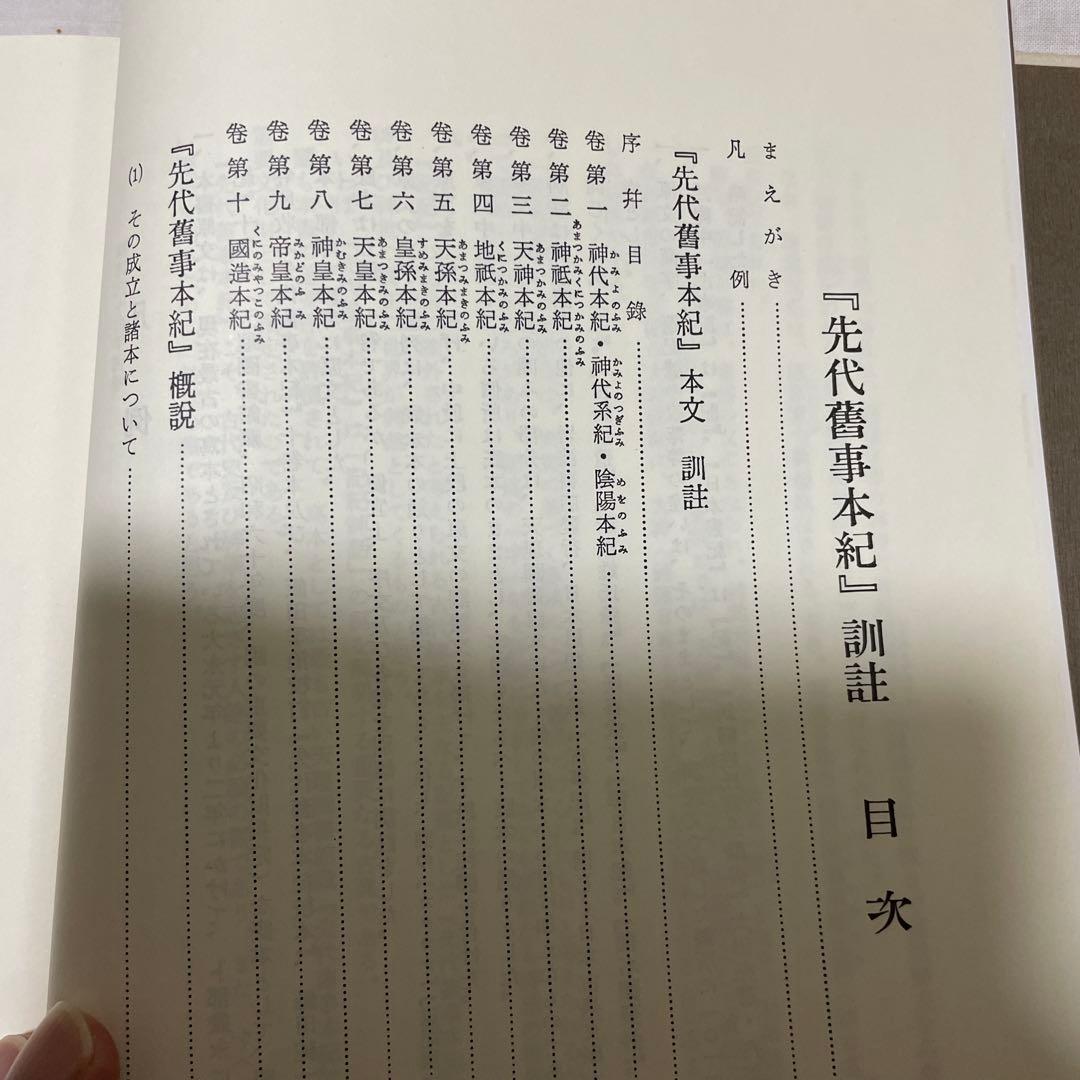 『先代舊事本紀』訓註　目次
まえがき
凡例
『先代舊事本紀』本文　訓註
序幷目錄
卷第一　神代本紀・神代系紀・陰陽本紀
かみよのふみ　かみよのつぎふみ　めをのふみ
卷第二　神祇本紀
あまつかみくにつかみのふみ
卷第三　天神本紀
あまつかみのふみ
卷第四　地祇本紀
くにつかみのふみ
卷第五　天孫本紀
あまつみまきのふみ
卷第六　皇孫本紀
すめみまきのふみ
卷第七　天皇本紀
あまつきみのふみ
卷第八　神皇本紀
かむきみのふみ
卷第九　帝皇本紀
みかどのふみ
卷第十　國造本紀
くにのみやつこのふみ
『先代舊事本紀』概說
(1)　その成立と諸本について